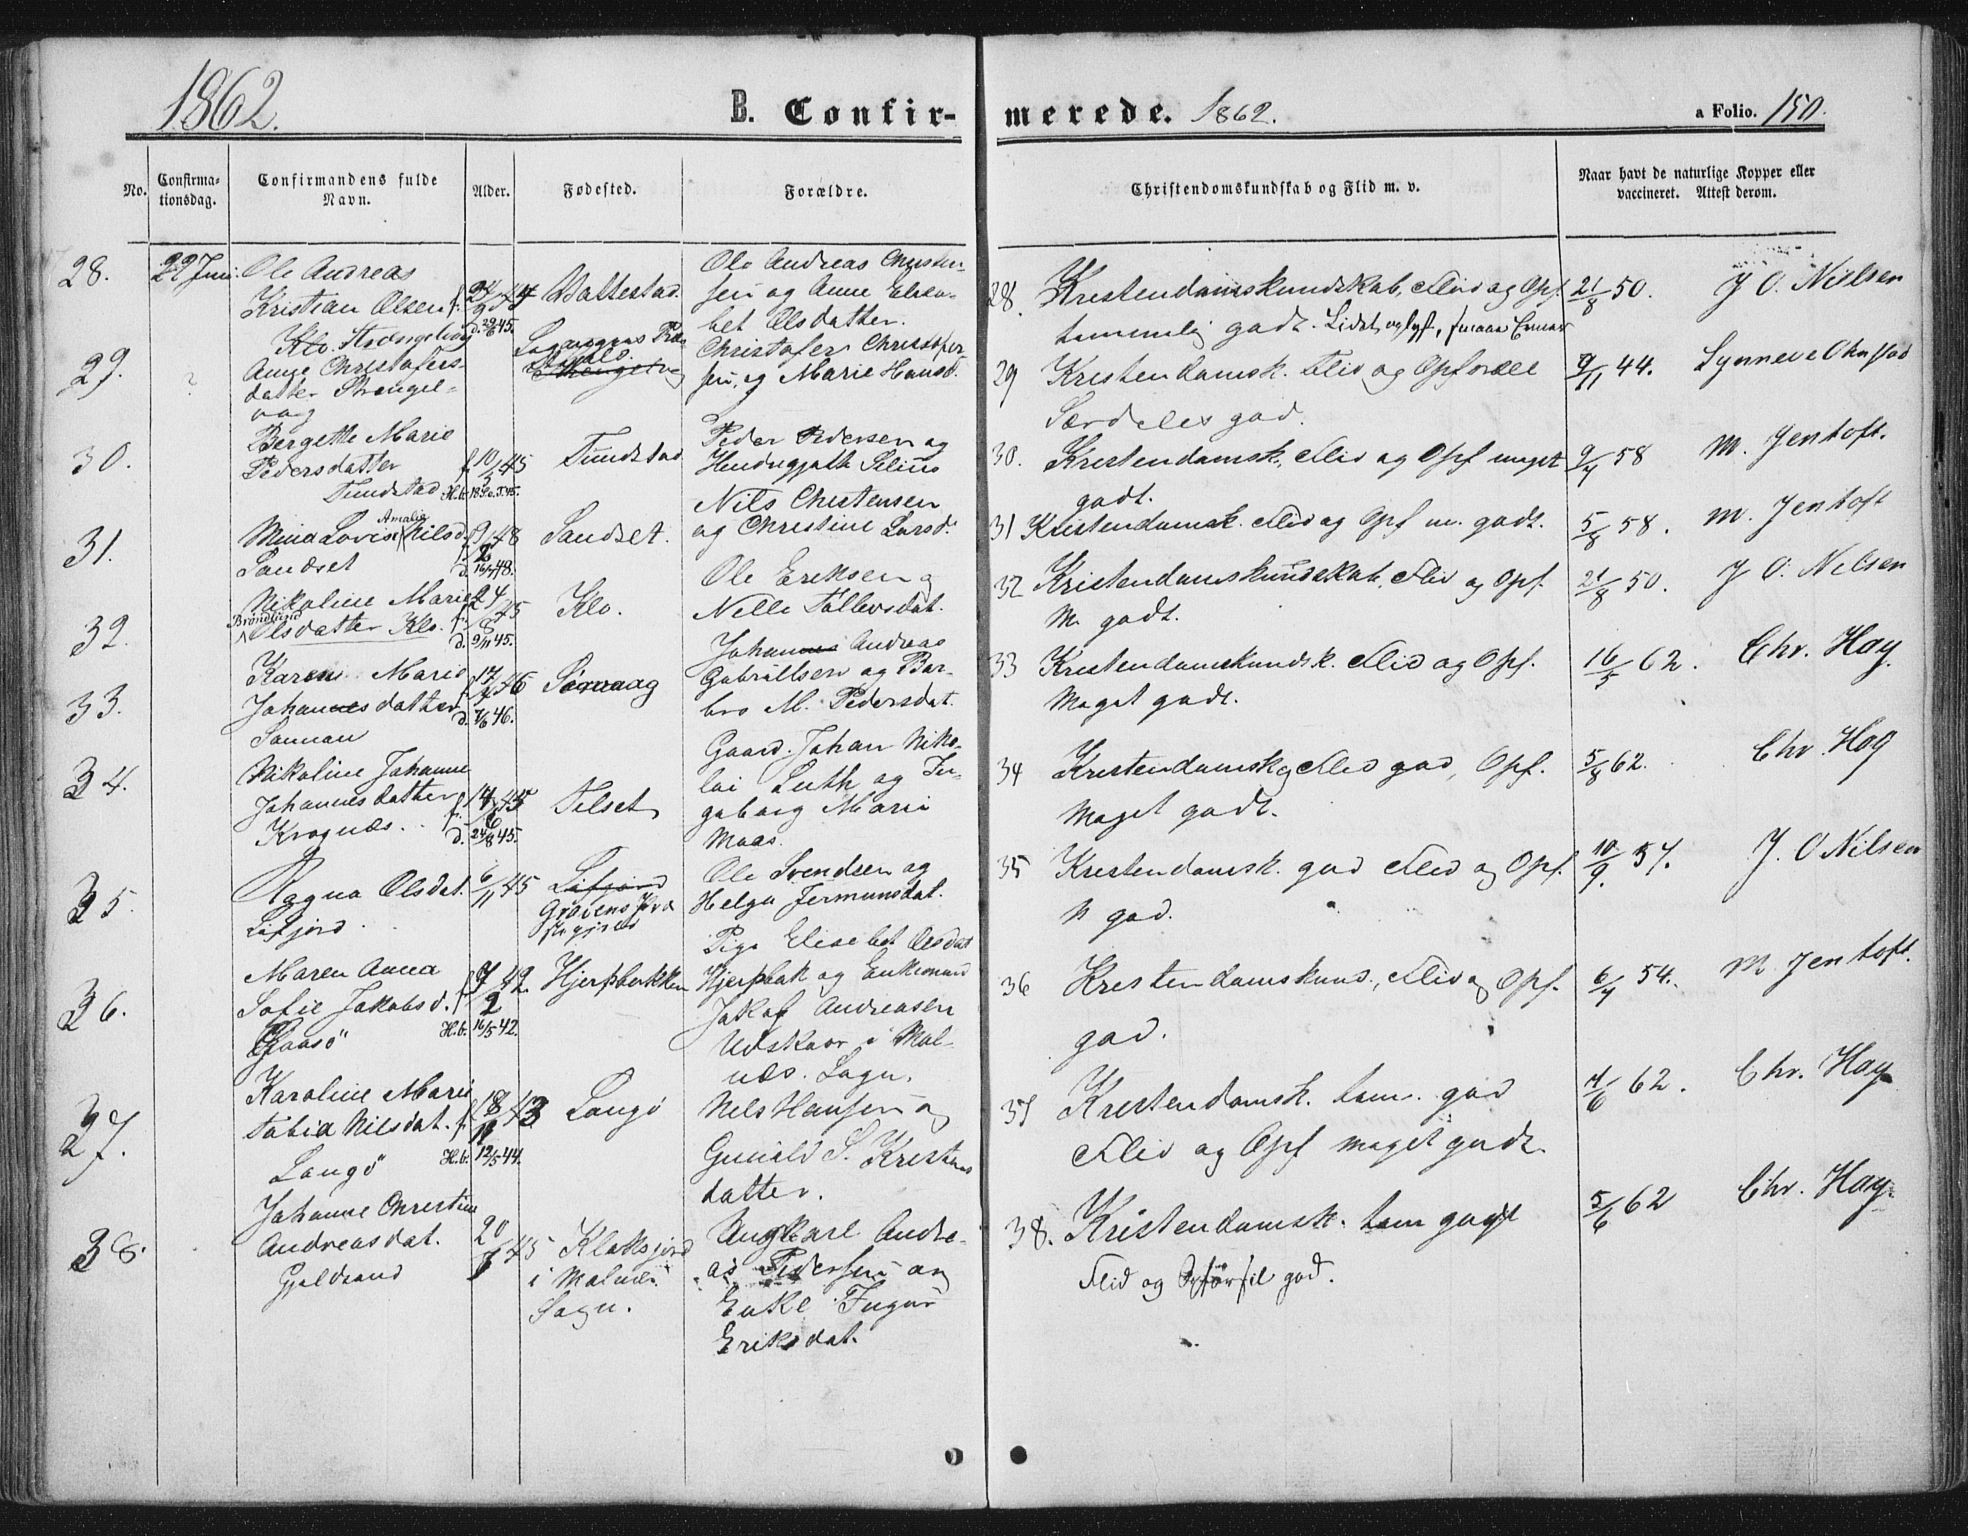 1862.
B. Confir-
merede. 1862.
a Folio. 150.
No.
Confirma-
tionsdag.
Confirmandens fulde
Navn.
Alder.
Fødested.
Forældre.
Christendomskundskab og Flid m. v.
Naar havt de naturlige Kopper eller
vaccineret. Attest derom.
28. 22 Juni. Ole Andreas
Kristian Olsen
Klo.
Vattestad.
Ole Andreas Christen-
sen og Anne Elisa-
bet Olsdatter.
28. Kristendomskundskab, Flid og Opf.
temmelig godt.
21/8 50. J O. Nielsen
29. Anne Christofers-
datter Strengel-
vag
Christofer Christofer
sen, og Marie Hansd.
29 Kristendomsk. Flid og Opførsel
Særdeles god.
9/11 44.
30. Bergette Marie
Pedersdatter
Tundstad
10/5 45
Tundstad
Peder Pedersen og
30. Kristendomsk, Flid og Opf meget
godt.
9/4 58 M. Jentoft.
31. Mina Lovise Amalie Nilsd.
Sandset
9/2 48
d. 16/4 48.
Sandset.
Nils Christensen
og Christine Larsd.
31 Kristendomsk. Flid og Opf m. godt.
5/8 58. M. Jentoft
32. Nikoline Marie
Brøndlund
Olsdatter Klo.
24/8 45
d. 9/11 45.
Klo.
Ole Eriksen og
Nelle Tollevsdat.
32 Kristendomskundskab, Flid og Opf.
M. godt.
21/8 50. J O. Nelsen
33. Karen Marie
Johannesdatter
Sannan
17/4 46
d. 7/6 46.
Johannes Andreas
Gabriellsen og Bar-
bro M. Pedersdat.
33 Kristendomskundsk. Flid og Opf.
Meget godt.
16/5 62. Chr. Hay
34. Nikoline Johanne
Johannesdatter
Kragnæs.
14/6 45
d. 24/8 45.
Tilset
Gaard. Johan Niko-
lai Luth og In-
geborg Marie
Maas.
34 Kristendomsk og Flid god, Opf.
Meget godt.
5/8 62. Chr. Hay
35. Ragna Olsdat.
Lifjord.
6/11 45
Lifjord
Ole Svendsen og
Helga Jermunsdat.
35 Kristendomsk. god Flid og Opf.
M god.
10/9. 57. J. O Nilsen
36. Maren Anna
Sofie Jakobsd.
Gaasö
7/2 42.
H.b. 16/5 42.
Hjerpbækken
Pige Elisebet Olsdat
Hjerpbak og Enkemand
Jakob Andreasen
Udskaar i Mal-
næs. Sogn.
36 Kristendomskund., Flid og Opf.
god.
6/4 54. M Jentoft.
37. Karoline Marie
Tobia Nilsdat.
Langö
18/11 43
H.b. 12/5 44.
Langö
Nils Hansen og
Gunild S. Kristens
datter.
37 Kristendomsk. tem. god
Flid og Opf meget godt.
4/6 62. Chr. Hay
38. Johanne Christine
Andreasdat.
Gjeldsand
Klaksjord
i Malnæs
Sogn.
Ungkarl Andre-
as Pedersen og
Enke Inger
Eriksdat.
38. Kristendomsk. tem godt
Flid og Opförsel god.
5/6 62 Chr. Hay.